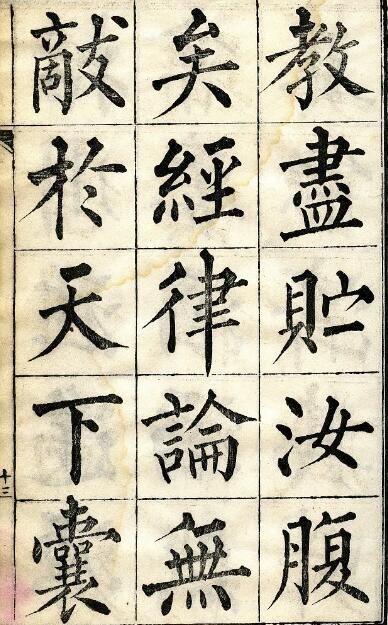 教盡貯汝腹
矣經律論無
敵於天下囊
十三